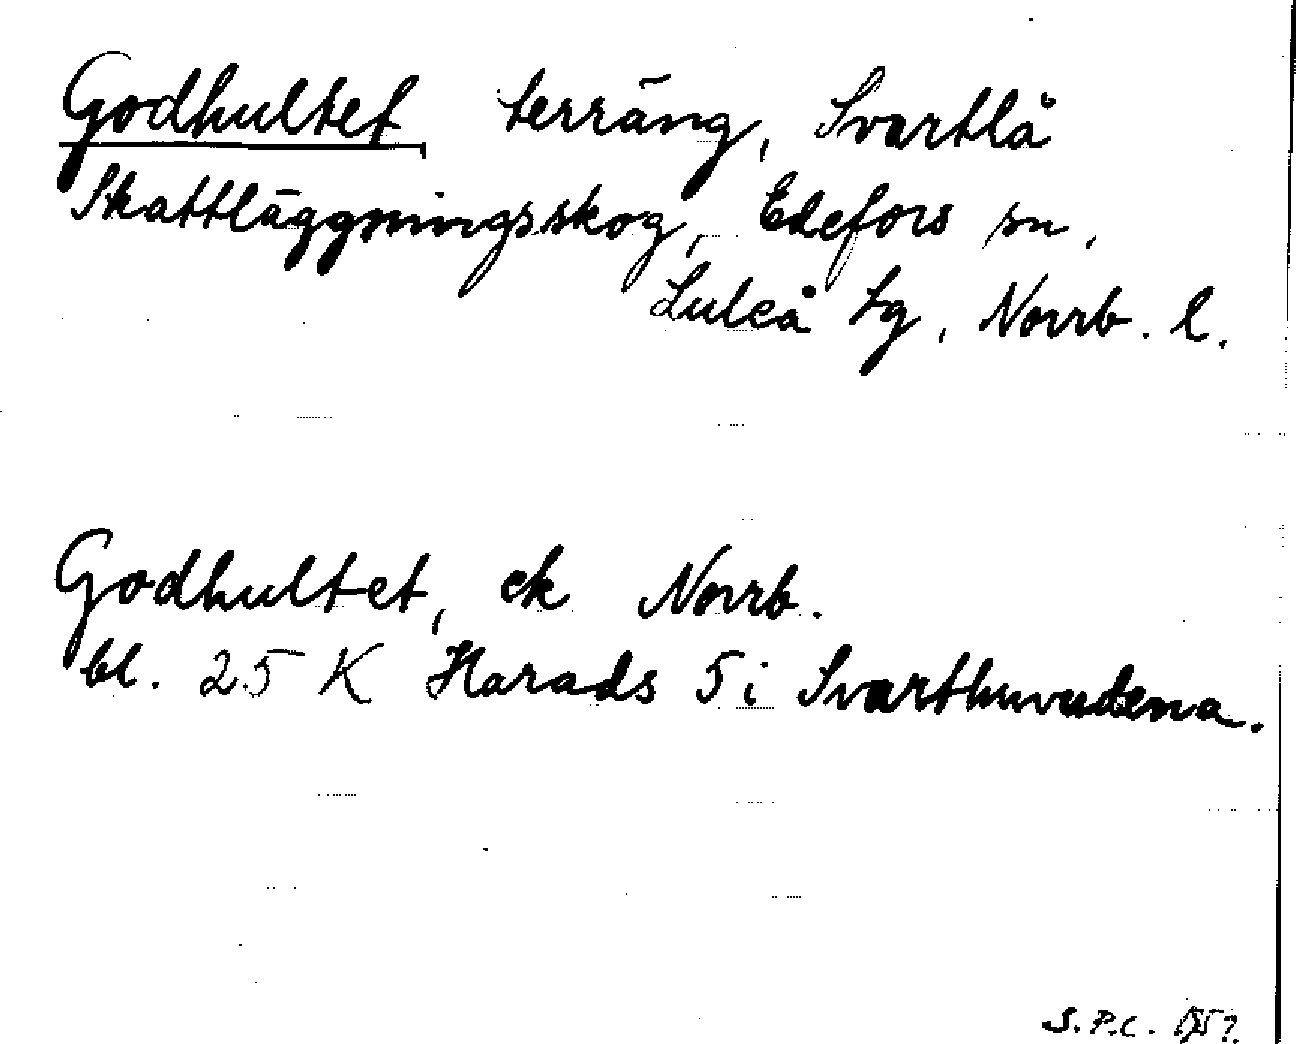 Godhultet, terräng, Svartlå
Skattläggningsskog, Edefors sn,
Luleå tg, Norrb. l.
Godhultet, ek Norrb.
bl. 25 K Harads 5 i Svarthuvudena.
S.P.C.